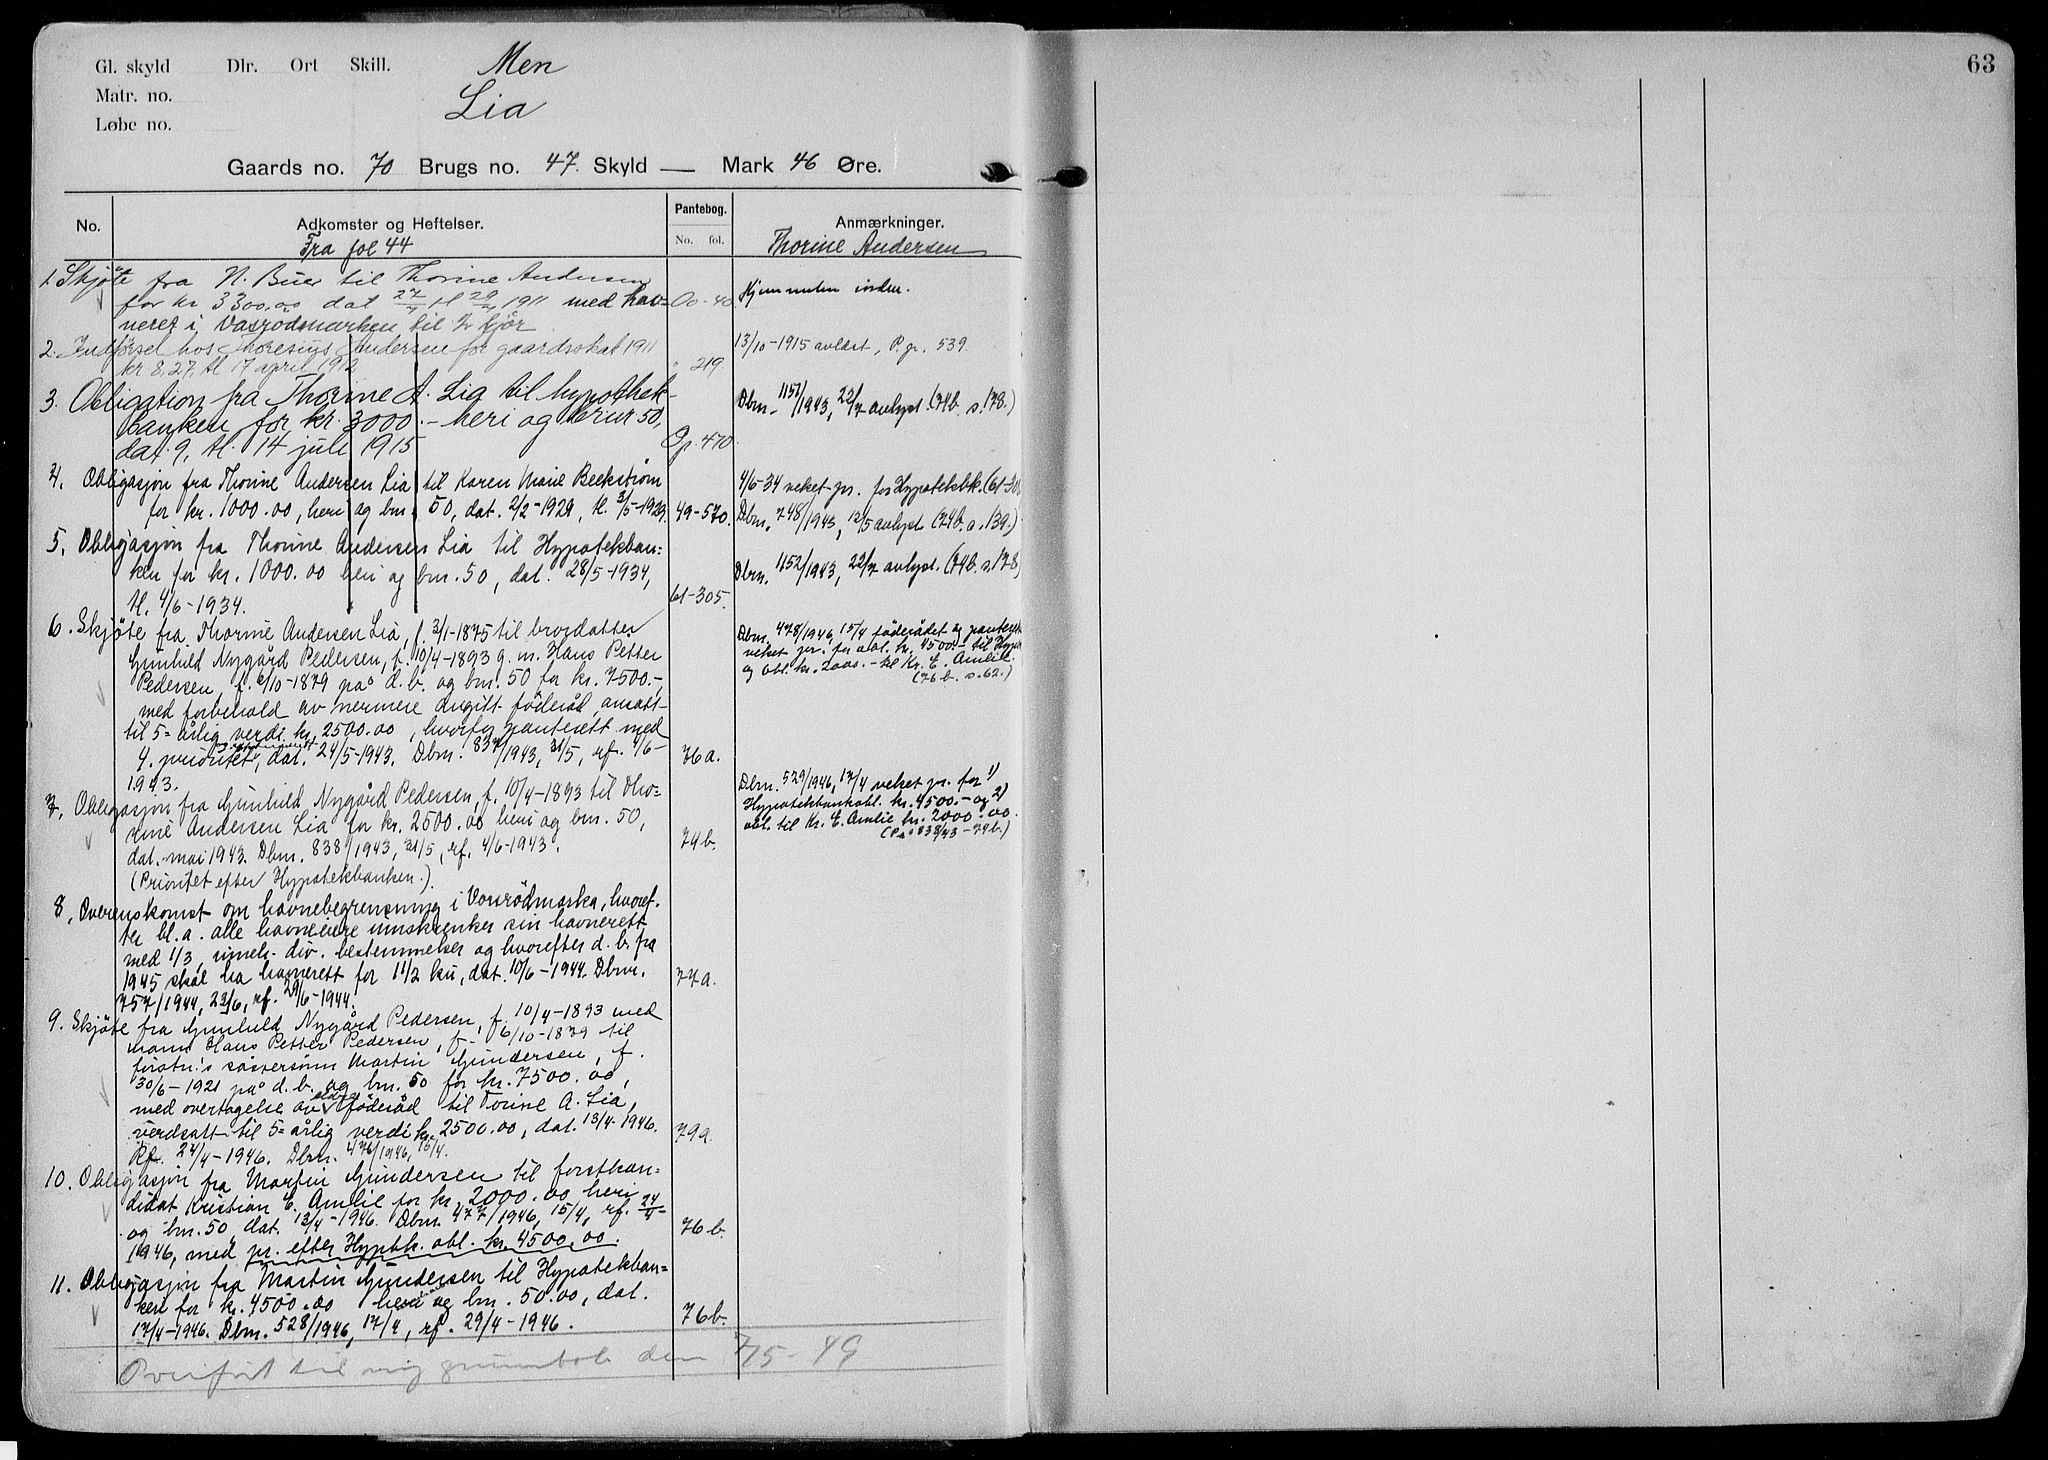 Gl. skyld Dlr. Ort Skill. Men
Matr. no. Lia
Løbe no.
63
Gaards no. 70 Brugs no. 47. Skyld — Mark 46 Øre.
No. Adkomster og Heftelser. Pantebog. No. fol. Anmærkninger.
Fra fol 44 Thorine Andersen
1. Skjöte fra N. Buer til Thorine Andersen
for kr 3300,00 dat 27/4 tl 29/4 1911 med hav- Oo-40 Hjemmelen iorden.
neret i Vasrodmarken til ½ kjör
2. Indførsel hos Thoresius Andersen for gaardsskat 1911 13/10-1915 avlæst, P.p. 539.
kr 8,27, tl 17 april 1912 " 219.
3. Obligation fra Thorine A. Lia til hypothek-
banken for kr. 3000.- heri og brnr 50, Dbm. 1151/1943, 22/7 avlyst. (74b. s. 178.)
dat. 9, tl. 14 juli 1915 Op. 470.
4. Obligasjon fra Thorine Andersen Lia til Karen Marie Beckström 4/6-34 veket pr. for Hypotekbk. (61-
for kr. 1000.00, heri og bnr. 50, dat. 2/2-1929, tl. 3/5-1929. 49-570. Dbm. 748/1943, 12/5 avlyst (74b. s. 139.)
5. Obligasjon fra Thorine Andersen Lia til Hypotekban=
ken for kr. 1000.00 heri og bnr. 50, dat. 28/5-1934, Dbm. 1152/1943, 22/7 avlyst. (74b. s. 178)
tl. 4/6-1934. 61-305.
6. Skjöte fra Thorine Andersen Lia, f. 3/1-1875 til brordatter Dbm. 478/1946, 15/4 föderådet og panterett
Gunhild Nygård Pedersen, f. 10/4-1893 g. m. Hans Petter veket pr. for obl. kr. 4500.- til Hypbk
Pedersen, f. 6/10-1879 på d. b. og bnr. 50 for kr. 7500.-, og obl. kr. 2000.- til Kr. E. Amlie.
med forbehold av nærmere angitt föderåd, ansatt (76 b. s. 62.)
til 5= årlig verdi kr. 2500.00, hvorfor panterett med
4. prioritet, dat. 24/5-1943. Dbm. 837/1943, 31/5, rf. 4/6-
1943. 76a.
7. Obligasjon fra Gunhild Nygård Pedersen, f. 10/4-1893 til Tho= Dbm. 529/1946, 17/4 veket pr. for 1)
rine Andersen Lia for kr. 2500.00 heri og bnr. 50, Hypotekbankobl. kr. 4500.- og 2)
dat. mai 1943. Dbm. 838/1943, 31/5, rf. 4/6-1943. 74b. obl. til Kr. E. Amlie kr. 2000.00.
(Prioritet efter Hypotekbanken.) (På 838/43-74b.)
8. Overenskomst om havnebegrensning i Vassrödmarka, hvoref-
ter bl. a. alle havneeiere innskrenker sin havnerett
med 1/3, inneh. div. bestemmelser og hvorefter d. b. fra
1945 skal ha havnerett for 1 1/2 ku, dat. 10/6-1944. Dbm. 77a.
757/1944, 22/6, rf. 29/6-1944.
9. Skjöte fra Gunhild Nygård Pedersen, f. 10/4-1893 med
mann Hans Petter Pedersen, f. 6/10-1879 til
förstn.'s søstersønn Martin Gundersen, f.
30/6-1921 på d. b. og bnr. 50 for kr. 7500.00,
med overtagelse av föderåd til Torine A. Lia,
verdsatt til 5= årlig verdi kr. 2500.00, dat. 13/4-1946. 79a.
Rf. 24/4-1946. Dbm. 476/1946, 15/4.
10. Obligasjon fra Martin Gundersen til forstkan=
didat Kristian E. Amlie for kr. 2000.00 heri
og bnr. 50, dat. 13/4-1946. Dbm. 477/1946, 15/4, rf. 24/4= 76b.
1946, med pr. efter Hypbk. obl. kr. 4500.00.
11. Obligasjon fra Martin Gundersen til Hypotekban=
ken for kr. 4500.00 heri og bnr. 50.00, dat.
17/4-1946. Dbm. 528/1946, 17/4, rf. 29/4-1946. 76b.
Overført til ny grunnbok den 7/5-49